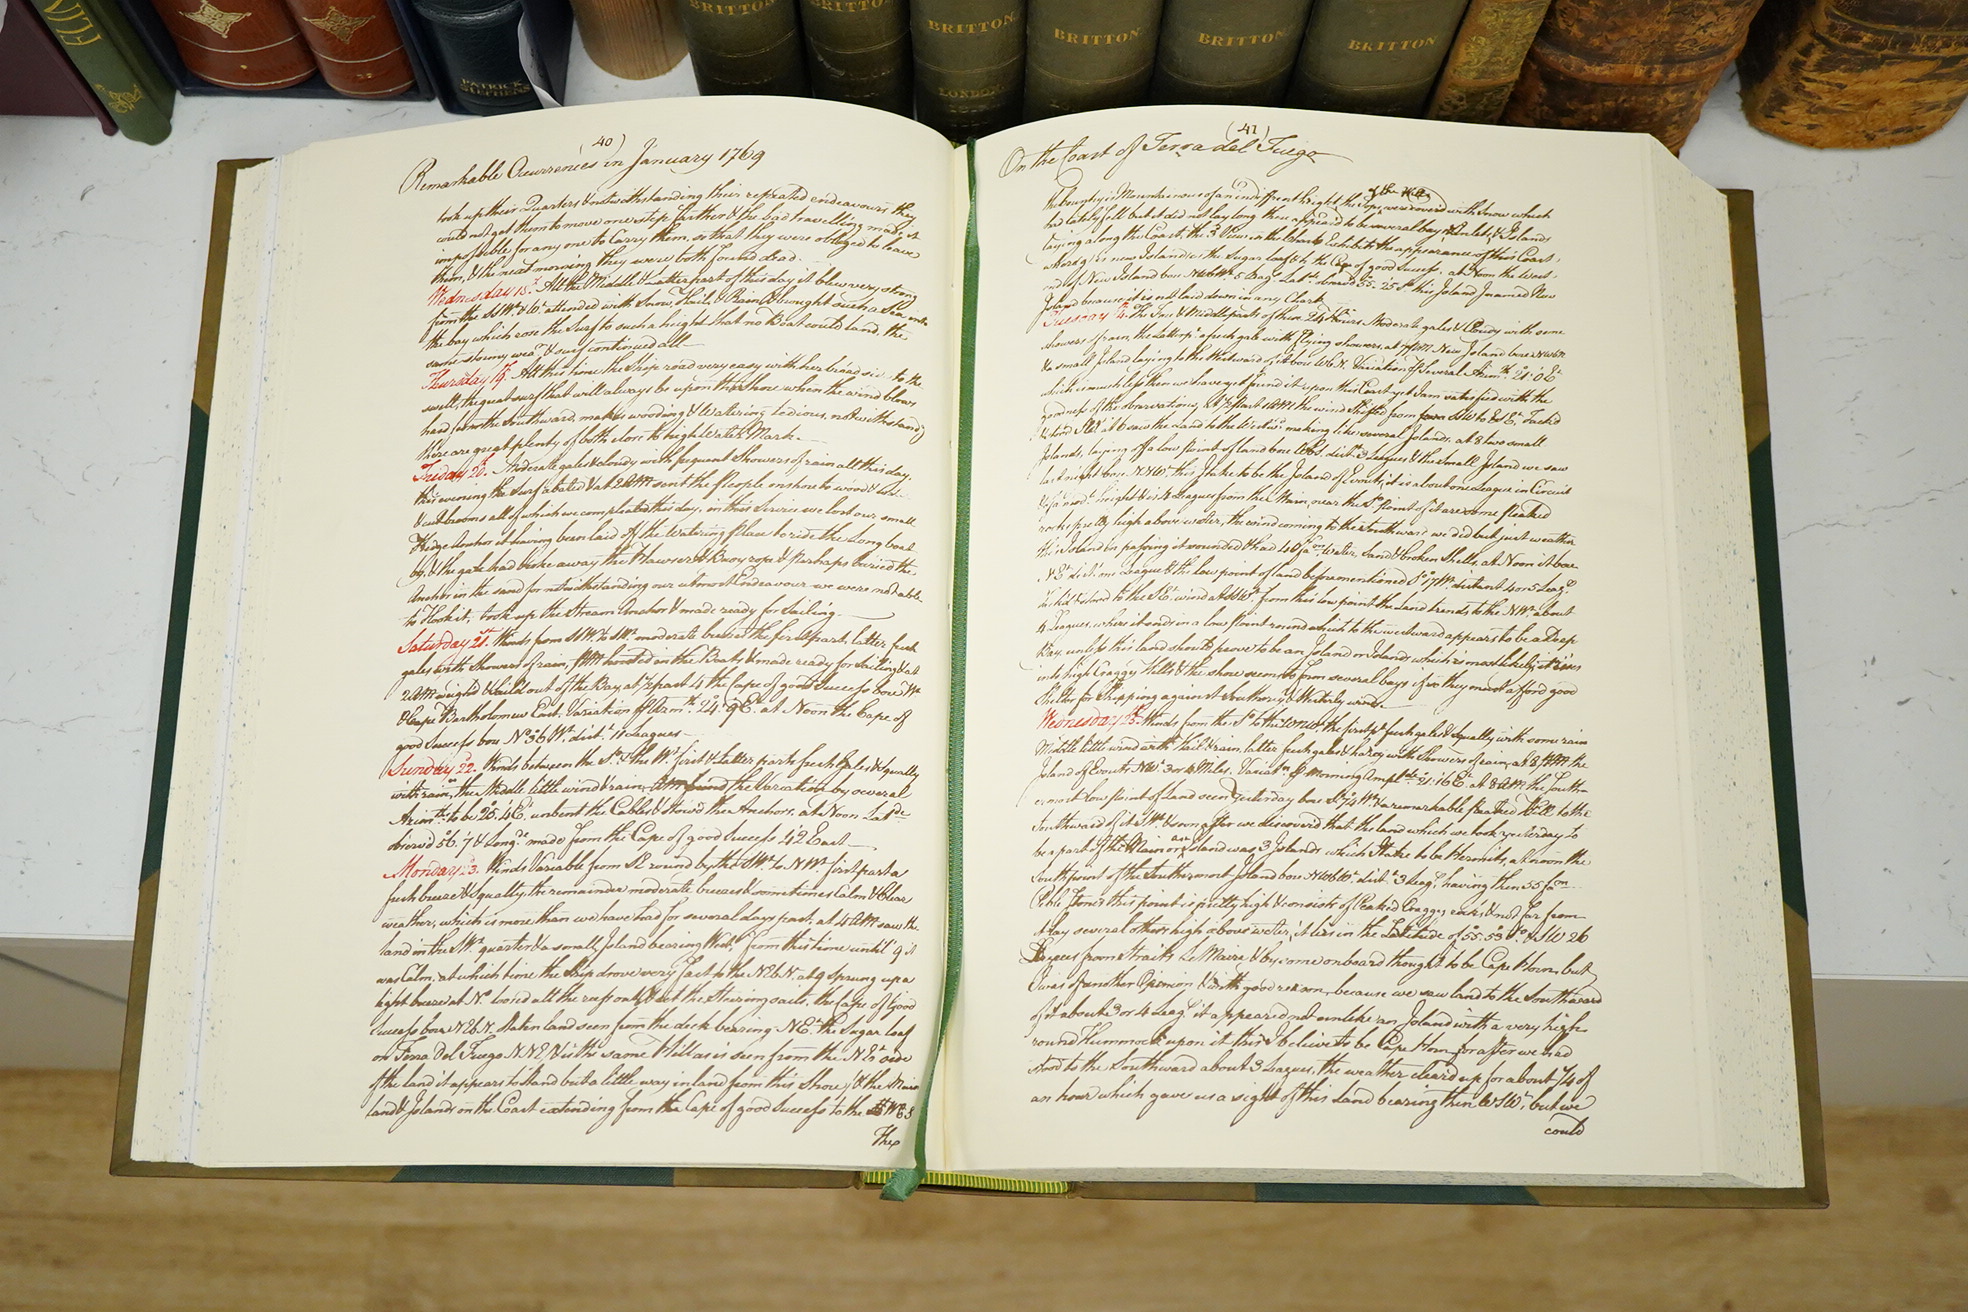 BRITTON
BRITTON
BRITTON
BRITTON
BRITTON
BRITTON
LONDON
PATRICK
STEPHENS
(40)
Remarkable Occurrences in January 1769
took up their Quarters & notwithstanding their repeated endeavours they
could not get them to move one step farther & the bad travelling made it
impossible for any one to Carry them, so that they were obliged to leave
them, & the next morning they were both found dead.
Wednesday 18th. All the Middle & Latter part of this day it blew very strong
from the SSWt. & SWt. attended with Snow, Hail & Rain & brought such a Sea into
the bay which rose the Surf to such a height that no Boat could land, the
same stormy wear. & surf continued all
Thursday 19th. All this time the Ship road very easy with her broad side to the
swell, the great surf that will always be upon this Shore when the wind blows
hard from the Southward, makes wooding & Watering tedious, notwithstandg.
there are great plenty of both close to high Water Mark.
Friday 20th. Moderate gales & cloudy with frequent Showers of rain all this day.
this evening the Surf abated & at 2 AM sent the People on shore to wood & water
& cut brooms all of which we compleated this day, in this Service we lost our small
Kedge Anchor it having been laid off the Watering Place to ride the Long boat
by, & the gale had broke away the Hawser & Buoy rope & perhaps buried the
Anchor in the sand for notwithstanding our utmost Endeavour we were not able
to Hook it; took up the Stream Anchor & made ready for Sailing
Saturday 21st. Winds from SSWt. to SWt. moderate breezes the first part, latter fresh
gales with Showers of rain, PM hoisted in the Boats & made ready for Sailing & at
2 AM weigh'd & Sail'd out of the Bay, at ½ past 4 the Cape of good Success bore Wt.
& Cape Bartholomew East, Variation Pr. Azmth. 24°.9' Et. at Noon the Cape of
good Success bore N°36' Wt. distt. 11 Leagues
Sunday 22. Winds between the So. & the Wt. first & Latter parts fresh Gales & Squally
with rain, the Middle little wind & rain, AM found the Variation by several
Azmth. to be 20°.4' Et. unbent the Cables & Stow'd the Anchors. at Noon Latde.
observd. 56°.7' & Longd. made from the Cape of good Success 42' East
Monday 23. Winds Variable from SE round by the SWt. to NWt. first part a
fresh breeze & Squally, the remainder moderate breezes & sometimes Calm & Clear
weather, which is more than we have had for several days past; at 4 AM saw the
land in the SWt. quarter & a small Island bearing West, from this time until 9 it
was Calm, at which time the Ship drove very fast to the NEbN. at 9 sprung up a
light breeze at N°. loosed all the reefs out & set the Steering sails, the Cape of Good
Success bore NEbN. Staten land seen from the deck bearing NEt. the Sugar loaf
on Terra Del Fuego NNE & is the same Hill as is seen from the N.Et. side
of the land it appears to stand but a little way in land from this Shore, & the Main
land & Islands on the Coast extending from the Cape of good Success to the WbS
The
(41)
On the Coast of Terra del Fuego
The Country is Mountainous of an indifferent height the Tops of the Hills were coverd with Snow which
had lately fell but it did not lay long there appeard to be several bays & inlets & Islands
laying along the Coast, the 3d. View in the Chart exhibits the appearance of this Coast
where g is new Island, e the Sugar loaf & h the Cape of good Success, at Noon the West
end of New Island bore NWbWt. 5 Leags. Latd. observd. 55°.25' So. this Island I named New
Island because it is not laid down in any Chart
Tuesday 24. The First & Middle parts of these 24 Hours Moderate gales & Cloudy with some
showers of rain, the Latter pt. a fresh gale with flying showers, at 7 PM New Island bore NWbN.
& a small Island laying to the Westward of it bore WbN. Variation Pr. Several Azmth. 21°.0' Et.
which is much less then we have yet found it upon this Coast yet I am satisfied with the
goodness of the observations, at ½ past 1 AM the wind Shifted from SSW to ESEt. Tack'd
& stood SWt. at 6 saw the Land to the Westwd. making like several Islands, at 8 two small
Islands, laying off a low point of land bore WbS. distt. 3 Leagues & the small Island we saw
last night bore NNWt. this I take to be the Island of Evouts, it is about one League in Circuit
& of a modt. height & is 4 Leagues from the Main, near the So. point of it are some Peaked
rocks pretty high above water, the wind coming to the Southward we did but just weather
this Island in passing it sounded & had 40 fam. water, sand & broken Shells, at Noon it bore
NEt. dist. one League & the low point of land beforementioned So. 17 Wt. distant 4 or 5 Leags.
Tack'd & stood to the SE. wind at SSWt. from this low point the Land trends to the NWt. about
4 Leagues, where it ends in a low point round which to the westward appears to be a Deep
Bay, unless this land should prove to be an Island or Islands which is most likely, it rises
into high Craggy Hills & the shore seems to form several bays if so they must afford good
Shelter for Shipping against Southerly & Westerly winds
Wednesday 25. Winds from the So. to the WNW. the first pt. fresh gales & Squally with some rain
Middle little wind with Hail & rain, latter fresh gales & hazey with Showers of rain, at 8 PM the
Island of Evouts NWt. 3 or 4 Miles. Variatn. Pr. Morning Amplde. 21°.16' Et. at 8 AM the Southr-
ermost low point of Land seen Yesterday bore So. 74 Wt. & a remarkable Peaked Hill to the
Southward of it SWt. & soon after we discoverd that the land which we took yesterday to
be a part of the Main or an Island was 3 Islands which I take to be Hermits, at noon the
South point of the Southermost Island bore NWbWt. dist. 3 Leags. having then 55 fam.
Peble Stones this point is pretty high & consists of Peaked Craggy rocks, & not far from
it lay several others high above water, it lies in the Latitude of 55°.53' So. & SW 26
Leagues from straits Le Maire & by some on board thought to be Cape Horn, but
I was of another Opinion & with good reason, because we saw land to the Southward
of it about 3 or 4 Leags. it appeared not unlike an Island with a very high
round Hummock upon it this I believe to be Cape Horn for after we had
stood to the Southward about 3 Leagues, the weather clear'd up for about ¼ of
an hour which gave us a sight of this Land bearing then WSWt. but we
could